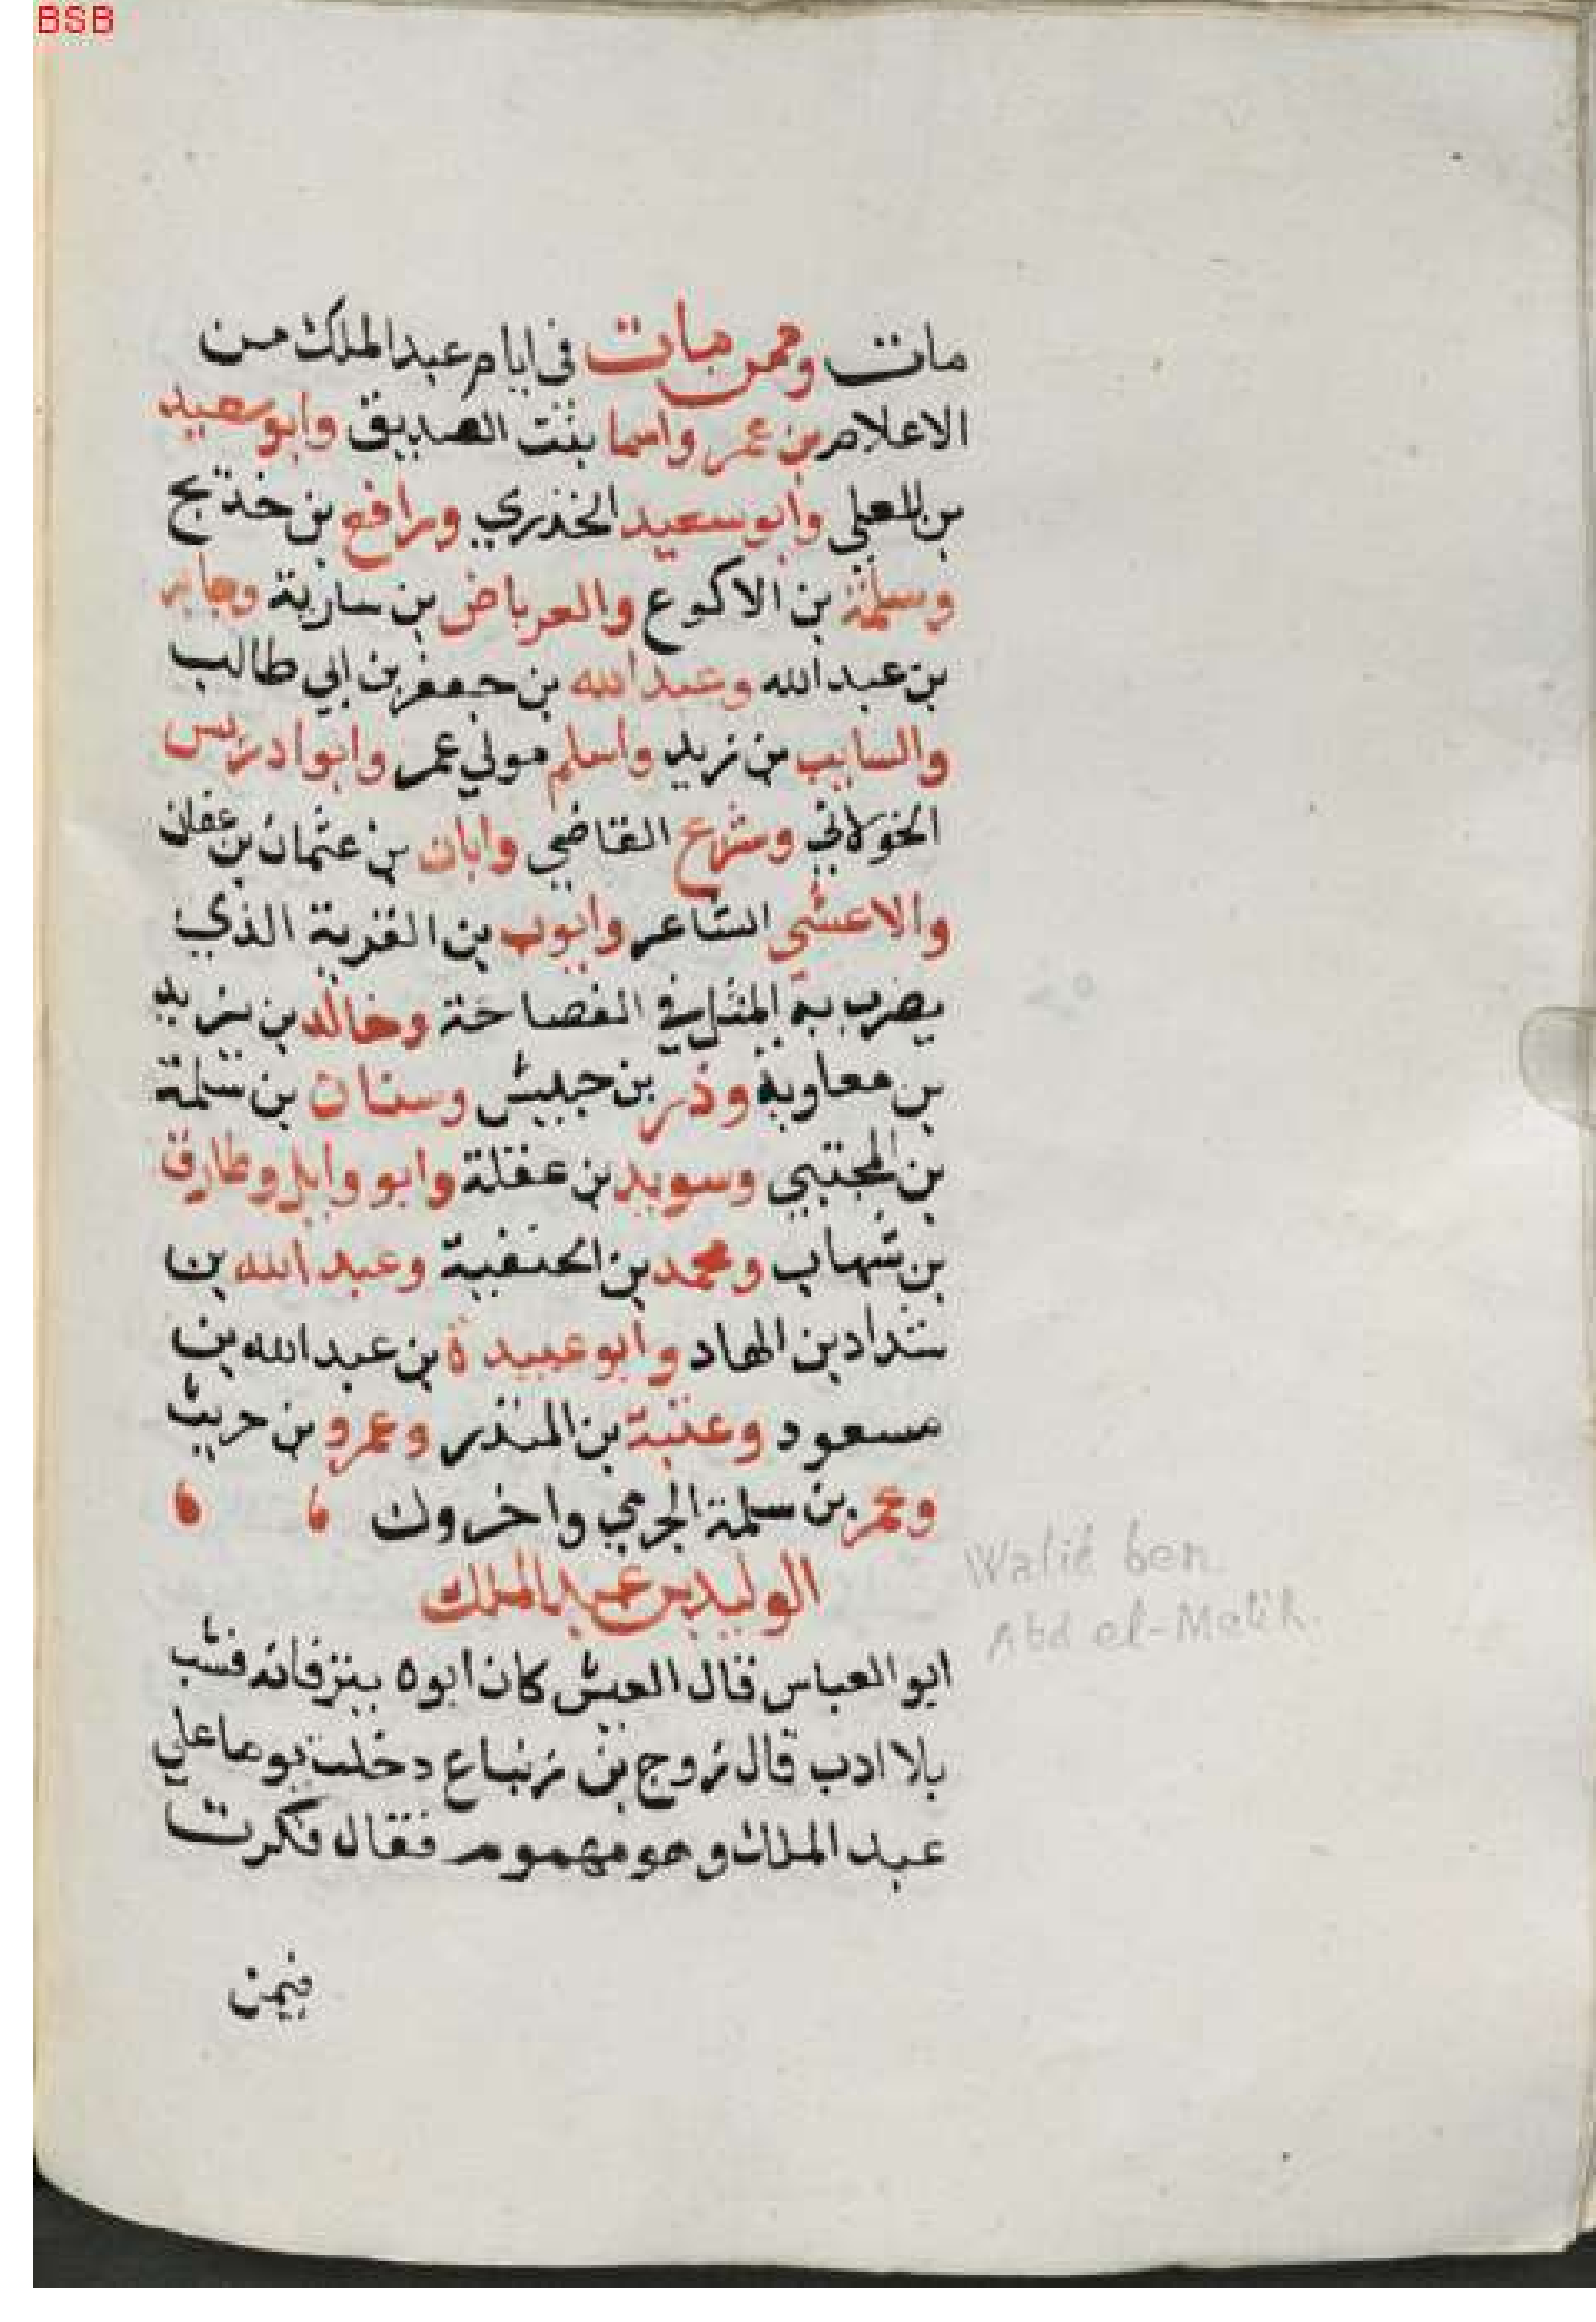 BSB
مات وممن مات في ايام عبد الملك من
الاعلام بن عمر واسما بنت الصديق وابو سعيد
بن المعلي وابو سعيد الخذري ورافع بن خذيج
وسلمة بن الاكوع والعرباض بن سارية وجابر
بن عبد الله وعبد الله بن جعفر بن ابي طالب
والسايب بن زيد واسلم مولي عمر وابو ادريس
الخولاني وشرع القاضي وابان بن عثمان بن عفان
والاعشي الشاعر وايوب بن القرية الذي
يضرب به المثل في الفصاحة وخالد بن يزيد
بن معاوية وذر بن حبيش وسنان بن سلمة
بن المجتبي وسويد بن عفلة وابو وايل وطارق
بن شهاب ومحمد بن الحنفية وعبد الله بن
شداد بن الهاد وابو عبيدة بن عبد الله بن
مسعود وعتبة بن المنذر وعمرو بن حريث
وعمر بن سلمة الجرمي واخرون
الوليد بن عبد الملك
Walid ben
Abd el-Melik.
ابو العباس قال العيش كان ابوه يتزفانه فشب
بلا ادب قال زوج بن زنباع دخلت يوما علي
عبد الملك وهو مهموم فقال فكرت
فيمن